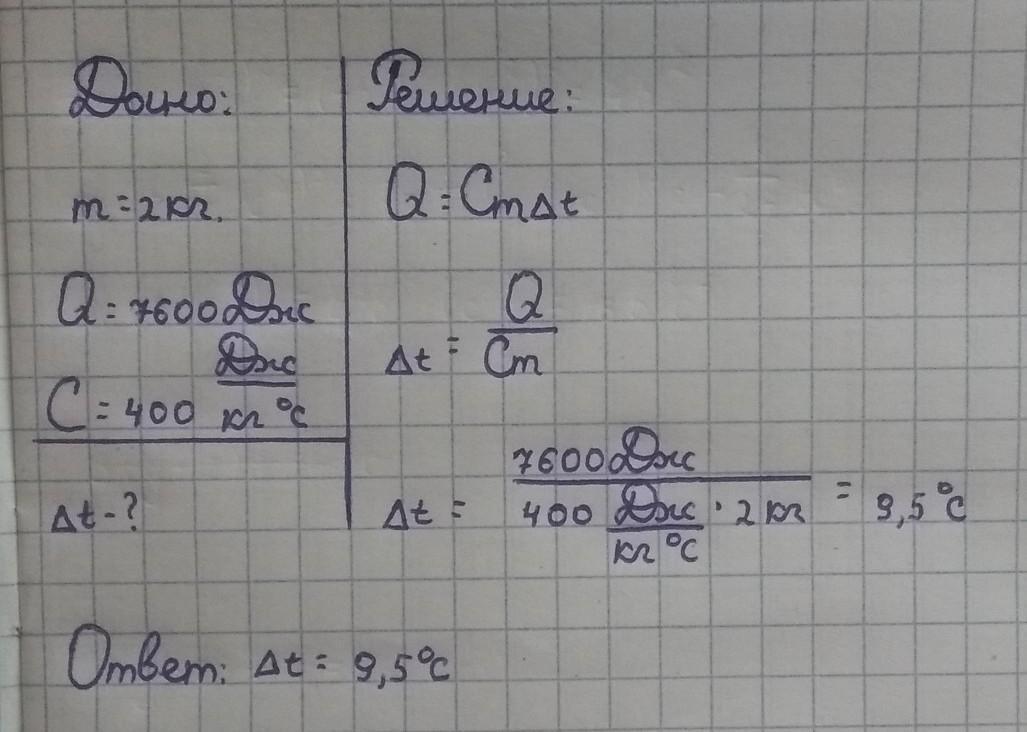 Дано:
m = 2 кг.
Q = 7600 Дж
C = 400 Дж/кг °C
Δt - ?
Решение:
Q = CmΔt
Δt = Q/Cm
Δt = 7600 Дж/400 Дж/кг °C · 2 кг = 9,5 °C
Ответ: Δt = 9,5 °C